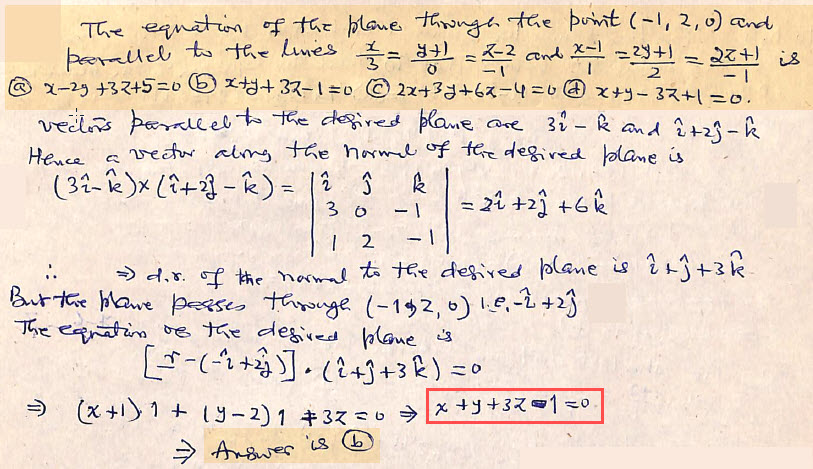 The equation of the plane through the point (-1, 2, 0) and
parallel to the lines x/3 = y+1/0 = z-2/-1 and x-1/1 = 2y+1/2 = 2z+1/-1 is
(a) x-2y+3z+5=0 (b) x+y+3z-1=0 (c) 2x+3y+6z-4=0 (d) x+y-3z+1=0.
vectors parallel to the desired plane are 3î - k̂ and î+2ĵ-k̂
Hence a vector along the normal of the desired plane is
(3î-k̂)×(î+2ĵ-k̂) = | î ĵ k̂ |
| 3 0 -1 | = 2î+2ĵ+6k̂
| 1 2 -1 |
∴ ⇒ d.r. of the normal to the desired plane is î+ĵ+3k̂
But the plane passes through (-1,2,0) i.e. -î+2ĵ
The equation of the desired plane is
[r-(-î+2ĵ)] . (î+ĵ+3k̂) = 0
⇒ (x+1) 1 + (y-2) 1 + 3z = 0 ⇒ x+y+3z-1=0
⇒ Answer is (b)